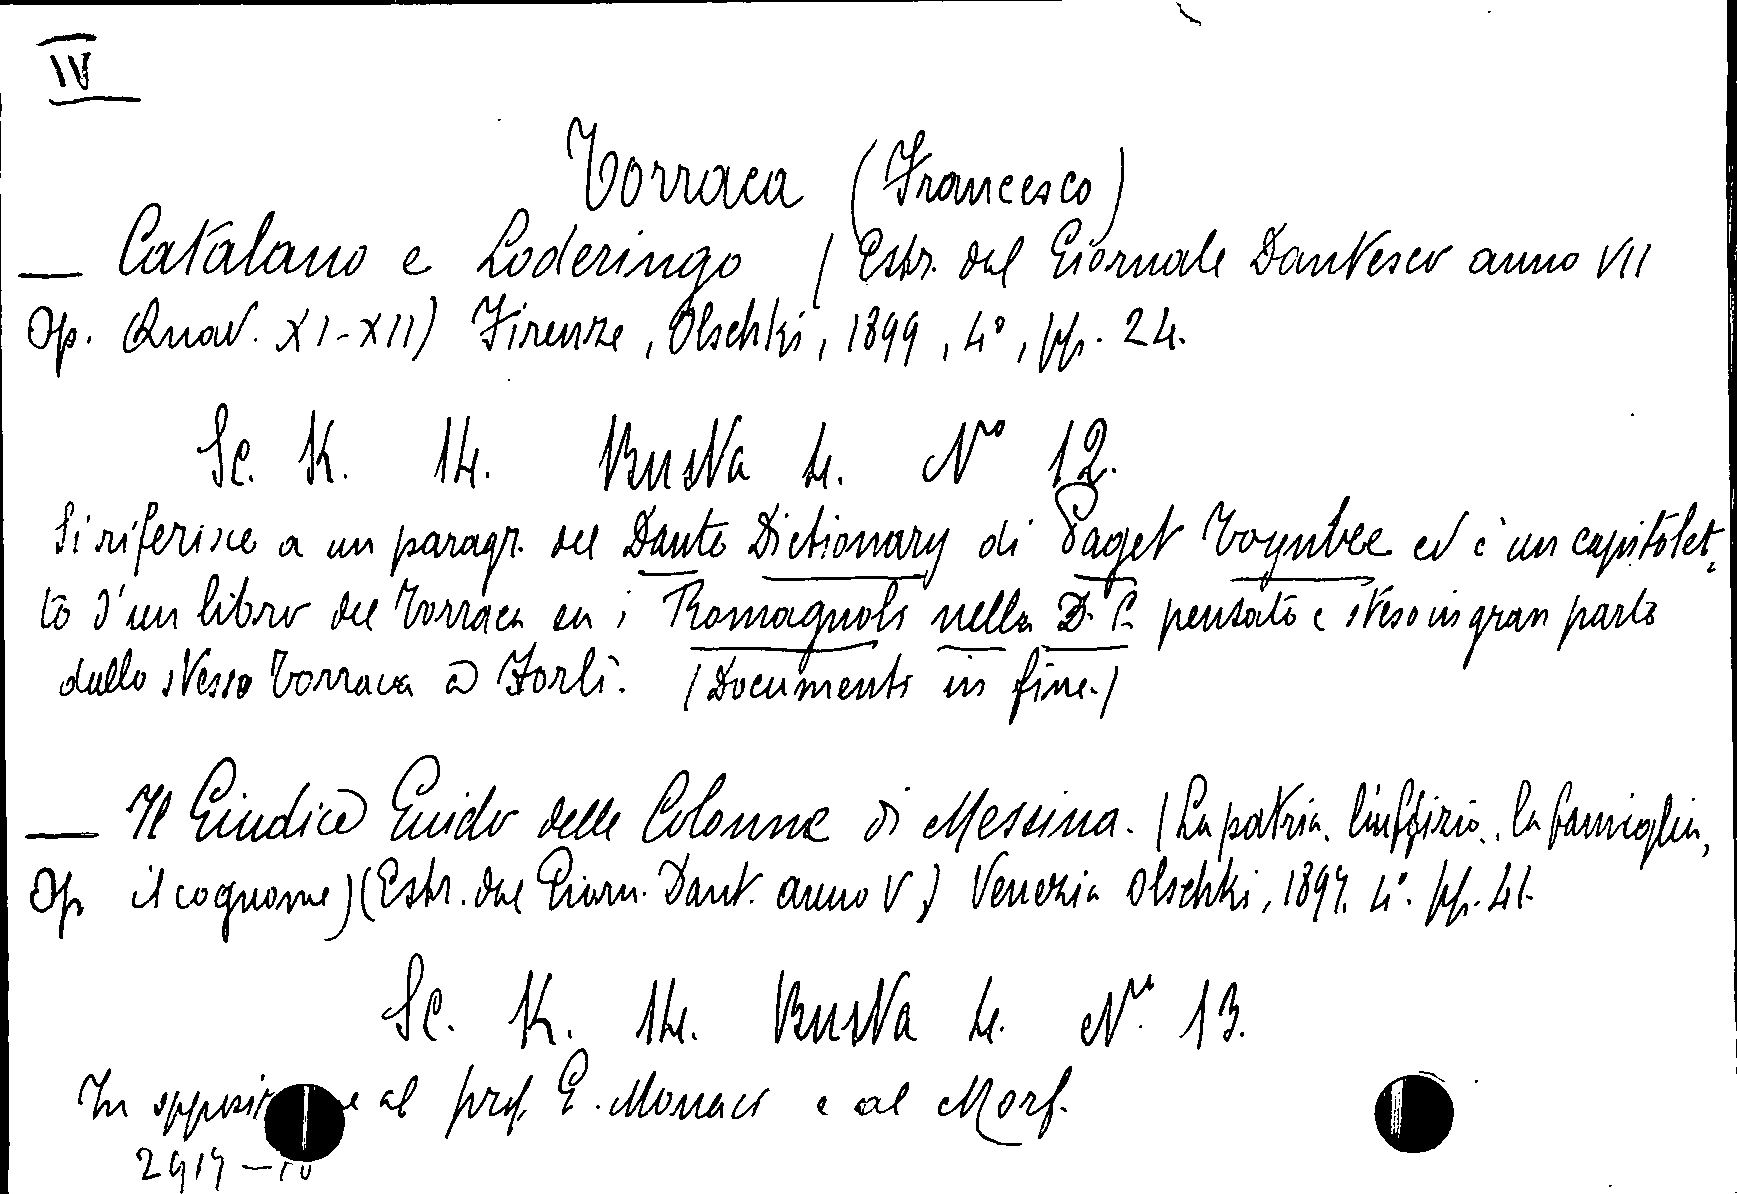 IV
Torraca (Francesco)
— Catalano e Loderingo (Estr. dal Giornale Dantesco anno VII
Op. Quad. XI-XII) Firenze, Olschki, 1899, 4°, pp. 24.
Sc. K. 14. Busta 4. N° 12.
Si riferisce a un paragr. del Dante Dictionary di Paget Toynbee ed è un capitolet-
to d'un libro del Torraca su i Romagnoli nella D. C. pensato e steso in gran parte
dallo stesso Torraca a Forlì. (Documenti in fine.)
— Il Giudice Guido delle Colonne di Messina. (La patria, l'uffizio, la famiglia,
Op. il cognome) (Estr. dal Giorn. Dant. anno V,) Venezia Olschki, 1897. 4°. pp. 41.
Sc. K. 14. Busta 4. N° 13.
In al prof. E. Monaci e al Morf.